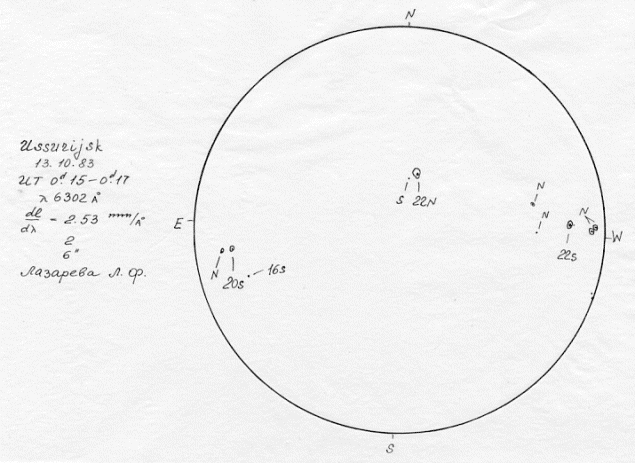 Ussurijsk
13.10.83
UT 0ᵈ.15–0ᵈ.17
λ 6302 Å
dl/dλ - 2.53 mm/Å
2
6"
Лазарева Л. Ф.
N
S 22N
N
N
N
E
W
22S
N
20S
16S
S